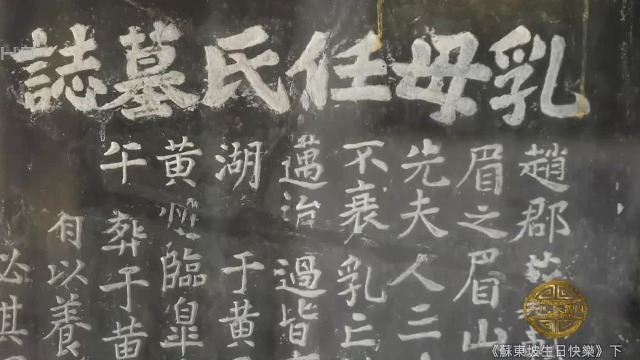 乳母任氏墓誌
趙郡蘇
眉之眉山
先夫人三
不衰乳亡
邁迨過皆
湖于黄
黄州臨臯
午葬于黄
有以養
必其
《蘇東坡生日快樂》下